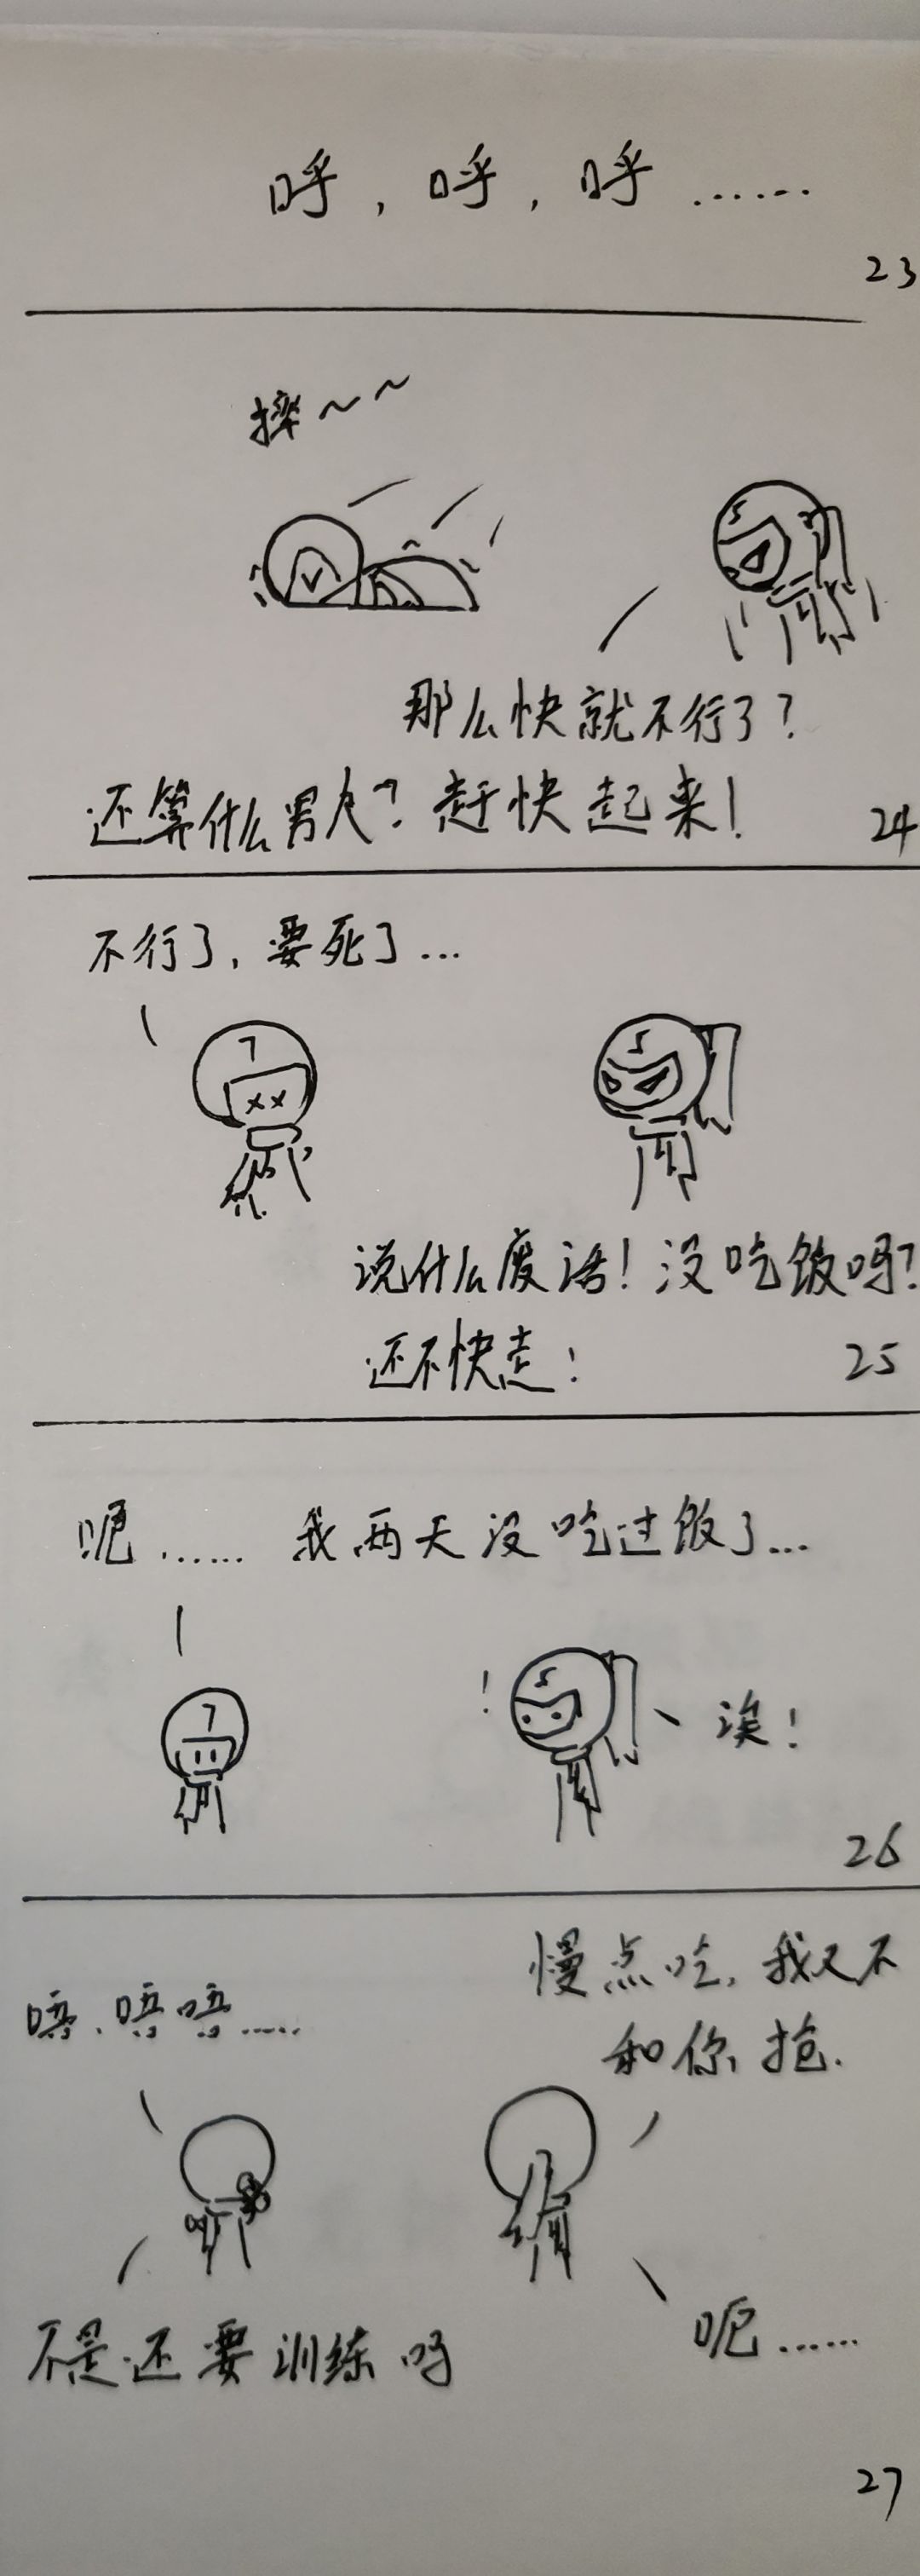 呼，呼，呼……
23
摔～～
5
那么快就不行了？
还算什么男人？赶快起来！
24
不行了，要死了…
7
5
说什么废话！没吃饭吗？
还不快走！
25
呃…… 我两天没吃过饭了…
7
5
！
诶！
26
慢点吃，我又不
和你抢.
唔、唔唔……
不是还要训练吗
呃……
27